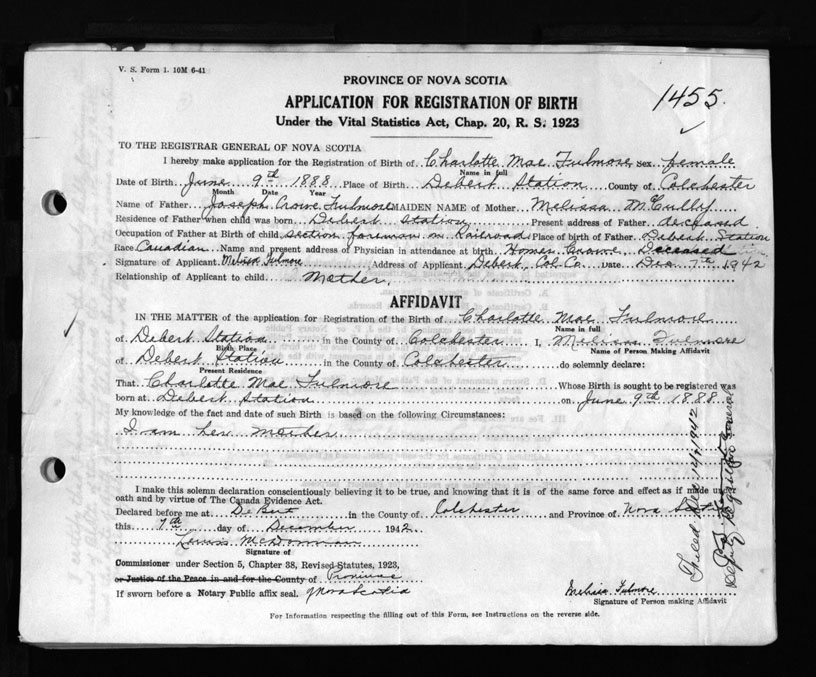 V. S. Form 1. 10M 6-41
PROVINCE OF NOVA SCOTIA
1455.
APPLICATION FOR REGISTRATION OF BIRTH
Under the Vital Statistics Act, Chap. 20, R. S. 1923
TO THE REGISTRAR GENERAL OF NOVA SCOTIA
I hereby make application for the Registration of Birth of Charlotte Mae Fulmore Sex female
Name in full
Date of Birth June 9th 1888 Place of Birth Debert Station County of Colchester
Month Date Year
Name of Father Joseph Crowe Fulmore MAIDEN NAME of Mother Melissa McCully
Residence of Father when child was born Debert Station Present address of Father deceased
Occupation of Father at Birth of child section foreman on Railroad Place of birth of Father Debert Station
Race Canadian Name and present address of Physician in attendance at birth Homer Crowe Deceased
Signature of Applicant Melissa Fulmore Address of Applicant Debert, Col. Co. Date Dec 7th 1942
Relationship of Applicant to child Mother
AFFIDAVIT
IN THE MATTER of the application for Registration of the Birth of Charlotte Mae Fulmore
Name in full
of Debert Station in the County of Colchester I, Melissa Fulmore
Birth Place Name of Person Making Affidavit
of Debert Station in the County of Colchester do solemnly declare:
Present Residence
That Charlotte Mae Fulmore Whose Birth is sought to be registered was
born at Debert Station on June 9th 1888
My knowledge of the fact and date of such Birth is based on the following Circumstances:
I am her mother
I make this solemn declaration conscientiously believing it to be true, and knowing that it is of the same force and effect as if made under
oath and by virtue of The Canada Evidence Act.
Declared before me at DeBert in the County of Colchester and Province of Nova Scotia
this 7th day of December 1942
Signature of
Commissioner under Section 5, Chapter 38, Revised Statutes, 1923,
or Justice of the Peace in and for the County of Province
If sworn before a Notary Public affix seal. of Nova Scotia
Melissa Fulmore
Signature of Person making Affidavit
For Information respecting the filling out of this Form, see Instructions on the reverse side.
Filed Dec 14/1942
Deputy Registrar General